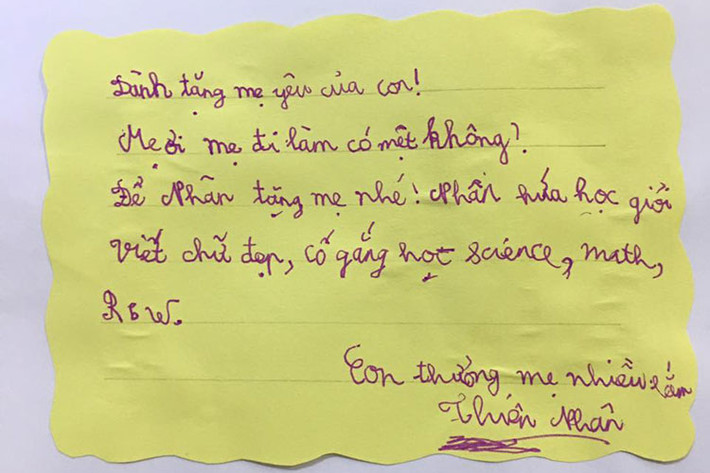 Dành tặng mẹ yêu của con!
Mẹ ơi mẹ đi làm có mệt không?
Để Nhân tặng mẹ nhé! Nhân hứa học giỏi
viết chữ đẹp, cố gắng học science, math,
R & W.
Con thương mẹ nhiều lắm
Thiện Nhân